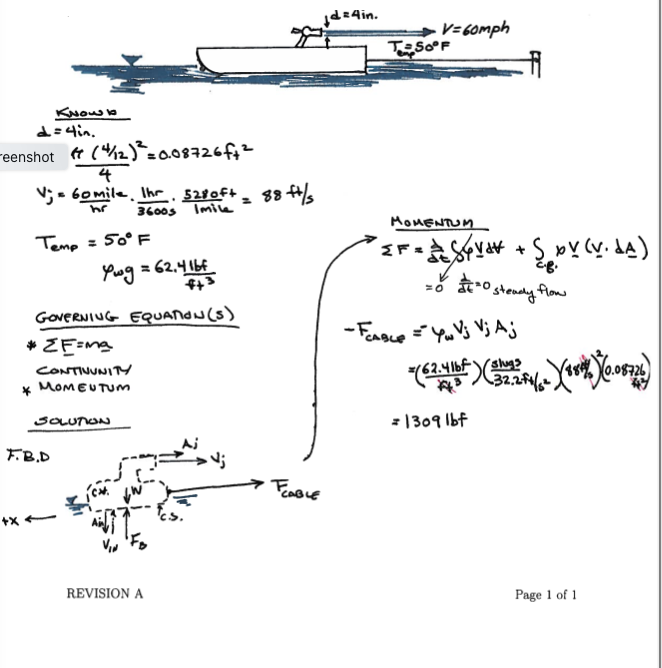 d=4in.
V=60mph
Temp=50°F
KNOWN
d=4in.
reenshot
π (4/12)²/4 = 0.08726ft²
Vj = 60mile/hr · 1hr/3600s · 5280ft/1mile = 88 ft/s
Temp = 50°F
= 62.4 lbf/ft³
GOVERNING EQUATION(S)
* ΣF=ma
CONTINUITY
* MOMENTUM
SOLUTION
F.B.D
Aj
Vj
C.V.
W
FCABLE
C.S.
+X
Ain
VIN
FB
MOMENTUM
ΣF = ∂/∂t ∫ρVdV + ∫c.s. ρV (V·dA)
=0 ∂/∂t=0 steady flow
-FCABLE = Vj Vj Aj
=(62.4lbf/ft³)(slugs/32.2ft/s²)(88ft/s)²(0.08726 ft²)
= 1309 lbf
REVISION A
Page 1 of 1